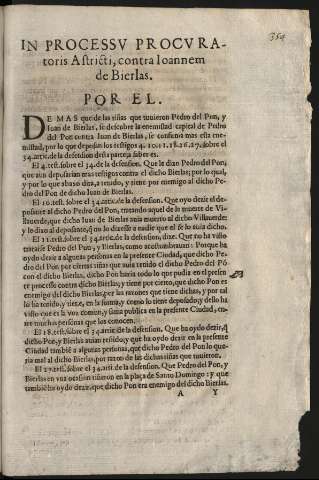 354
IN PROCESSV PROCVRA-
toris Astricti, contra Ioannem
de Bierlas.
POR EL.
DE MAS que de las riñas que tuuieron Pedro del Pon, y
Iuan de Bierlas, se descubre la enemistad capital de Pedro
del Pon contra Iuan de Bierlas, se confirma mas esta ene-
mistad, por lo que deposan los testigos 4. 10. 11. 18. 26. 27. sobre el
34. artic. de la defension desta parte; a saber es.
El 4. test. sobre el 34. de la defension. Que le dixo Pedro del Pon,
que aun deposarian mas testigos contra el dicho Bierlas; por lo qual,
y por lo que abaxo dira, a tenido, y tiene por enemigo al dicho Pe-
dro del Pon de dicho Iuan de Bierlas.
El 10. test. sobre el 34. artic. de la defension. Que oyo dezir el de-
posante al dicho Pedro del Pon, tratando aquel de la muerte de Vi-
llauerde, que dicho Iuan de Bierlas auia muerto al dicho Villauerde:
y lo dixo al deposante, q̃ no lo dixesse a nadie que el se lo auia dicho.
El 11. test. sobre el 34. artic. de la defension, dize. Que no ha visto
tratarse Pedro del Pon, y Bierlas, como acostumbrauan: Porque ha
oydo dezir a algunas personas en la presente Ciudad, que dicho Pe-
dro del Pon por ciertas riñas que auia tenido el dicho Pedro del Pō
con el dicho Bierlas, dicho Pon haria todo lo que pudia en el presen
te processo contra dicho Bierlas; y tiene por cierto, que dicho Pon es
enemigo del dicho Bierlas, por las razones que tiene dichas, y por tal
lo ha tenido, y tiene, en la forma, y como lo tiene deposado, y dello ha
visto que es la voz comun, y fama publica en la presente Ciudad, en-
tre muchas personas que los conocen.
El 18. test. sobre el 34. artic. de la defension. Que ha oydo dezir, q̃
dicho Pon, y Bierlas auian reñido, y que ha oydo dezir en la presente
Ciudad tambiē a algunas personas, que dicho Pedro del Pon lo que-
ria mal al dicho Bierlas, por razon de las dichas riñas que tuuieron.
El 27. test. sobre el 34. arti. de la defension. Que Pedro del Pon, y
Bierlas en vna ocasion riñeron en la plaça de Santo Domingo: y que
tambiē ha oydo dezir, que dicho Pon era enemigo del dicho Bierlas.
A Y